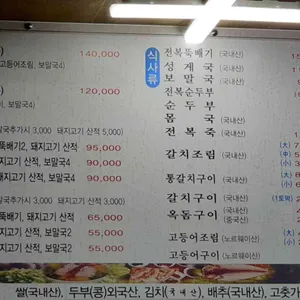 ) 140,000
고등어조림, 보말국4
) 120,000
, 보말국4)
갈국추가시 3,000 돼지고기 산적 5,000)
뚝배기2, 돼지고기 산적 95,000
지고기 산적, 보말국4 90,000
돼지고기 산적, 보말국4 90,000
갈국추가시 3,000 돼지고기 산적 3,000
뚝배기, 돼지고기 산적 65,000
지고기 산적, 보말국2 55,000
돼지고기 산적, 보말국2 55,000
식사류
전복뚝배기 (국내산)
성게국 (국내산)
보말국 (국내산)
전복순두부
순두부
몸국 (국내산)
전복죽 (국내산)
갈치조림 (국내산) (대)
(중)
(소)
통갈치구이 (국내산) (대)
갈치구이 (국내산) (1토막)
옥돔구이 (중국산) (대)
고등어조림 (노르웨이산) (대)
(소)
고등어구이 (노르웨이산)
쌀(국내산), 두부(콩)외국산, 김치(국내산), 배추(국내산), 고춧가